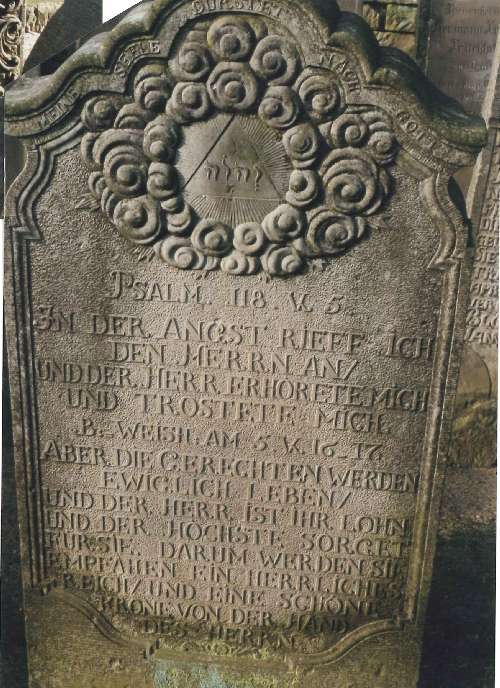 MEINE SEELE DÜRSTET NACH GOTT
יהוה
PSALM. 118. V. 5.
IN DER ANGST RIEFF ICH
DEN HERRN AN/
UND DER HERR ERHÖRETE MICH
UND TRÖSTETE MICH.
B. WEISH. AM 5. V. 16. 17.
ABER DIE GERECHTEN WERDEN
EWIGLICH LEBEN/
UND DER HERR IST IHR LOHN
UND DER HÖCHSTE SORGET
FÜR SIE. DARUM WERDEN SIE
EMPFAHEN EIN HERRLICHES
REICH/ UND EINE SCHÖNE
KRONE VON DER HAND
DES HERRN